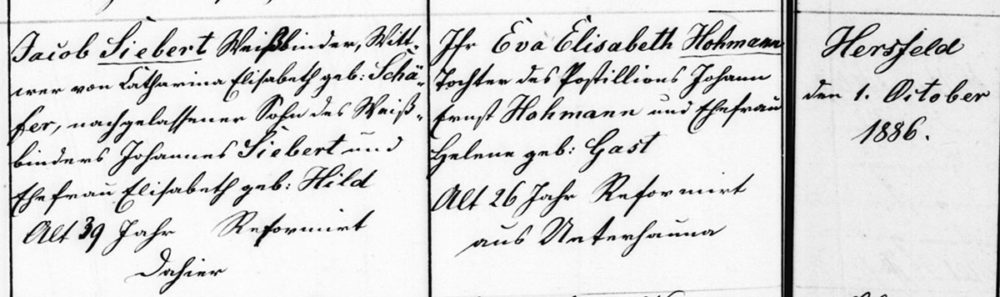 Jacob Siebert Weißbinder, Witt-
wer von Katharina Elisabeth geb: Schä-
fer, nachgelassener Sohn des Weiß-
binders Johannes Siebert und
Ehefrau Elisabeth geb: Hild
Alt 39 Jahr Reformirt
Dahier
Ihr Eva Elisabeth Hohmann
Tochter des Postillions Johann
Ernst Hohmann und Ehefrau
Helene geb: Gast
Alt 26 Jahr Reformirt
aus Unterhauna
Hersfeld
den 1. October
1886.